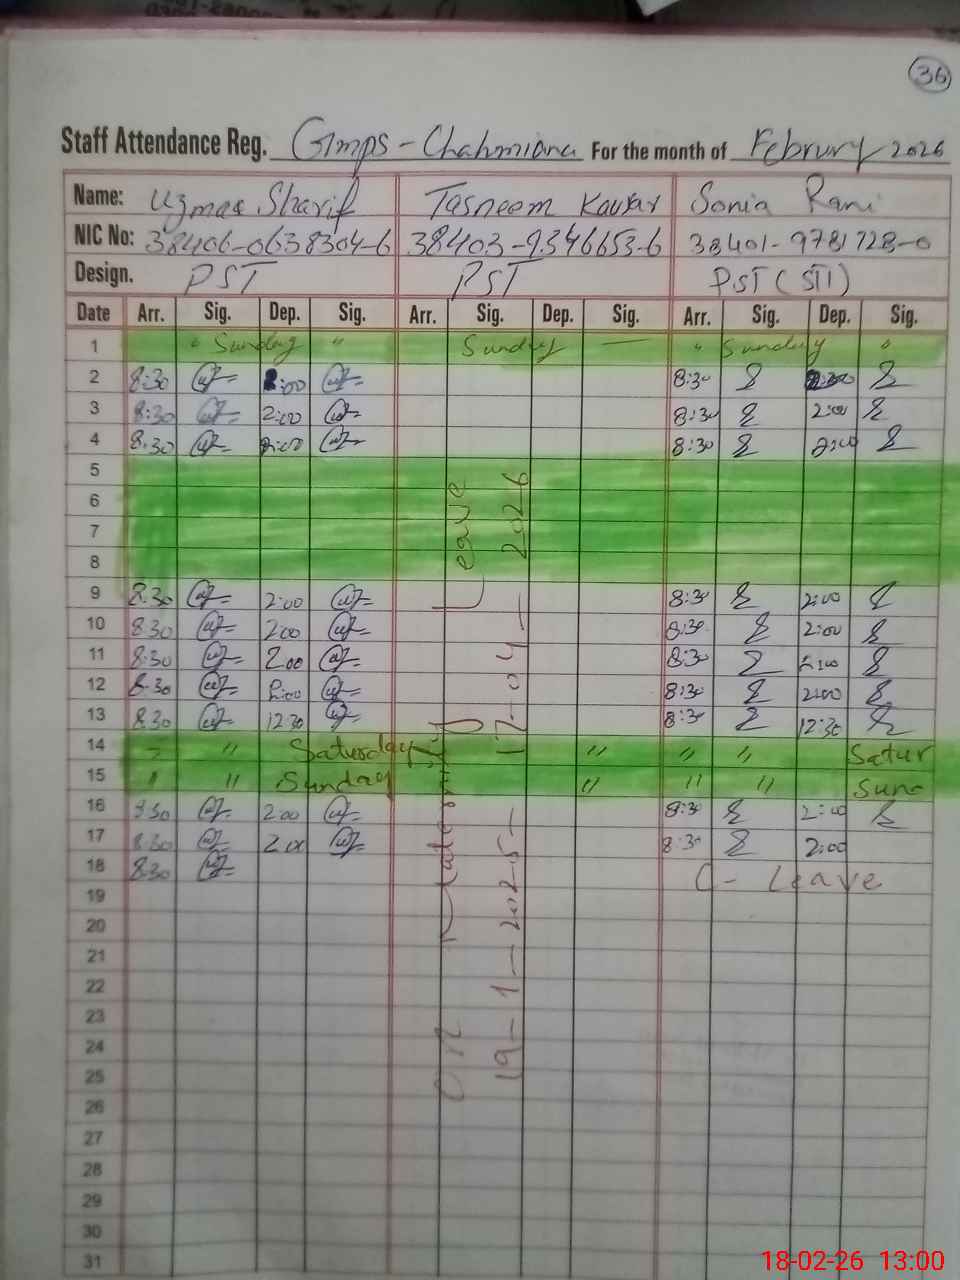 36
Staff Attendance Reg. Gmps - Chahmiana For the month of Februry 2026
Name: Uzmaa Sharif Tasneem Kausar Sonia Rani
NIC No: 38406-0638304-6 38403-9346653-6 38401-9781728-0
Design. PST PST PST (STI)
Date Arr. Sig. Dep. Sig. Arr. Sig. Dep. Sig. Arr. Sig. Dep. Sig.
1 " Sunday " Sunday — " Sunday "
2 8:30 2:00 8:30
3 8:30 2:00 8:30 2:00
4 8:30 2:00 8:30 2:00
5
6
7
8
9 8:30 2:00 8:30 2:00
10 8:30 2:00 8:30 2:00
11 8:30 2:00 8:30 2:00
12 8:30 2:00 8:30 2:00
13 8:30 12:30 8:30 12:30
14 " " Saturday " " " Satur
15 " " Sunday " " " Sun
16 8:30 2:00 8:30 2:00
17 8:30 2:00 8:30 2:00
18 8:30 C- Leave
19
20
21
22
23
24
25
26
27
28
29
30
31
On Maternity Leave
19-1-2025- 17-04-2026
18-02-26 13:00